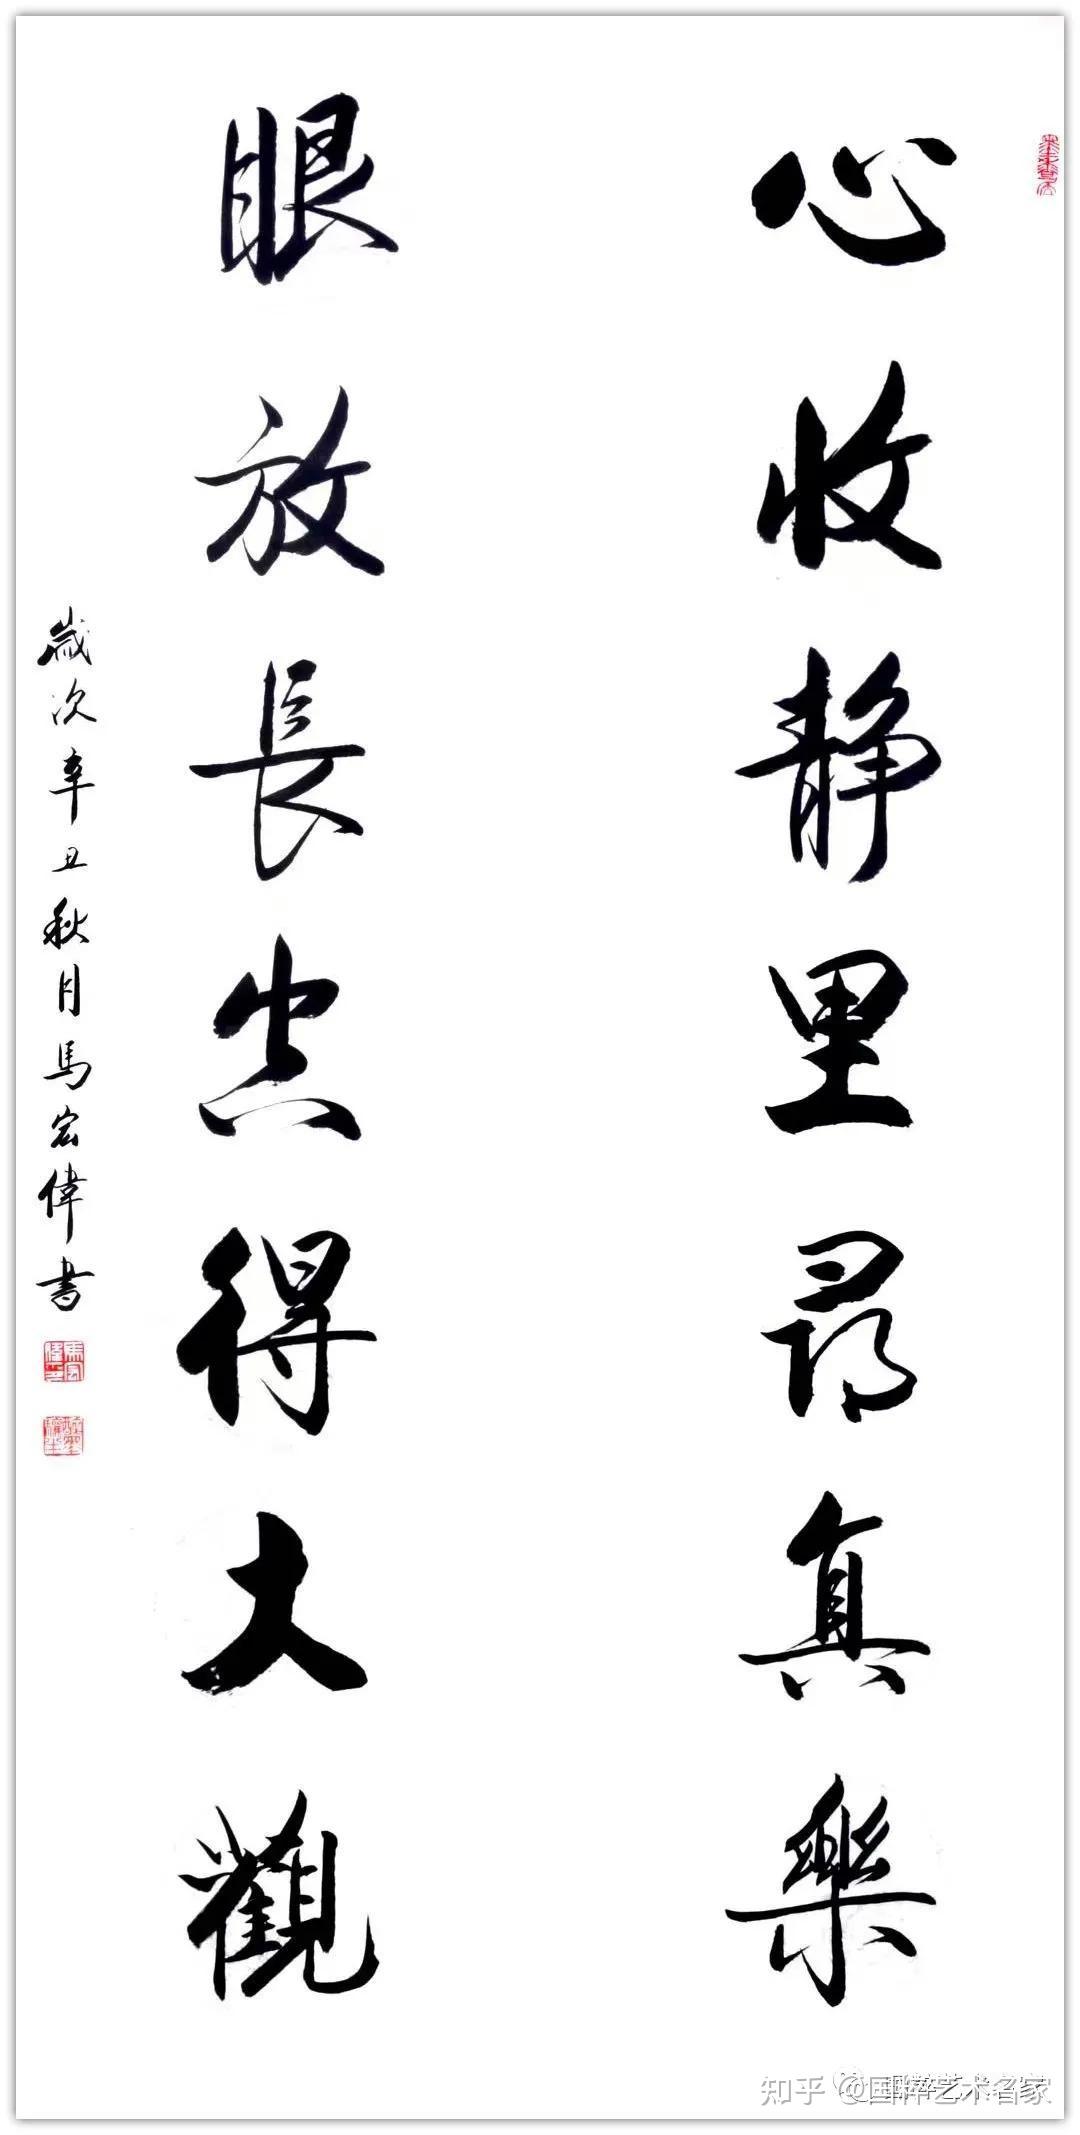 心收静里尋真樂
眼放長空得大觀
歲次辛丑秋月馬宏偉書
知乎 @国粹艺术名家